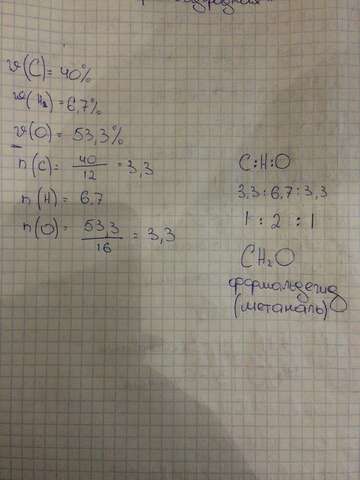 ω(C) = 40%
ω(H₂) = 6,7%
ω(O) = 53,3%
n(C) = 40/12 = 3,3
n(H) = 6.7
n(O) = 53,3/16 = 3,3
C:H:O
3,3 : 6,7 : 3,3
1 : 2 : 1
CH₂O
формальдегид
(метаналь)